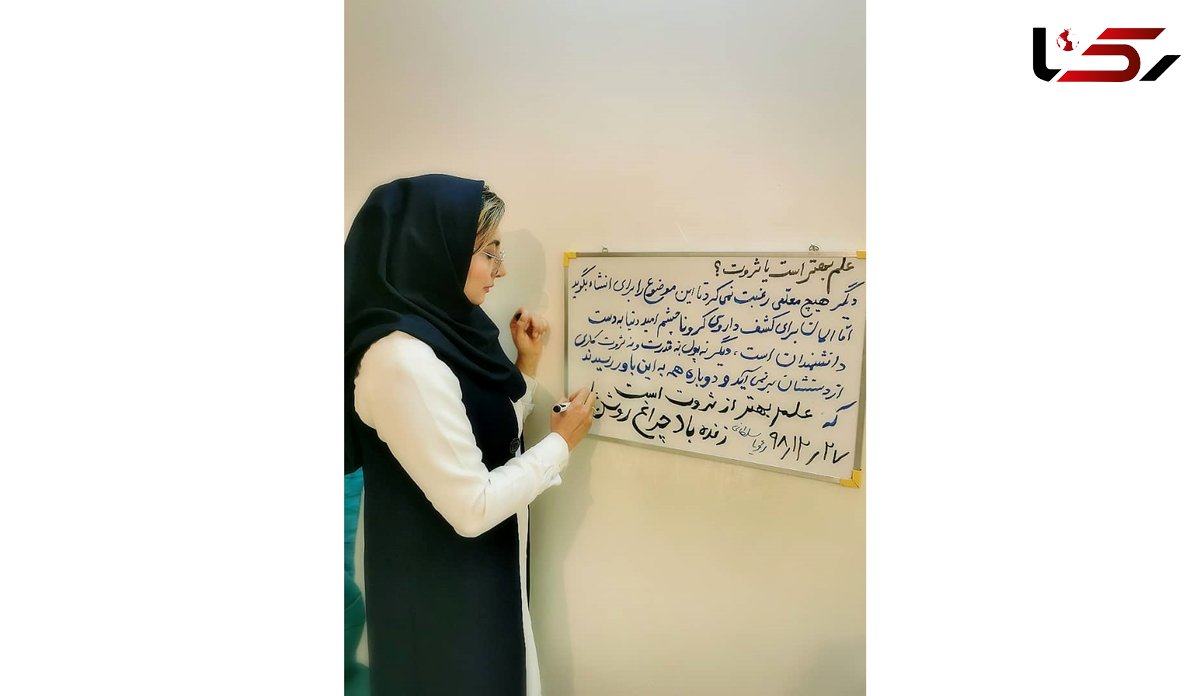 رکنا
علم بهتر است یا ثروت؟
دیگر هیچ معلمی رغبت نمی کرد تا این موضوع را برای انشاء بگوید
اما الان برای کشف داروی کرونا چشم امید دنیا به دست
دانشمندان است، دیگر نه پول نه قدرت و نه ثروت کاری
از دستشان بر نمی آید و دوباره همه به این باور رسیدند
که علم بهتر از ثروت است
زنده باد چراغ روشن
۹۸/۱۲/۲۷ سلطانی